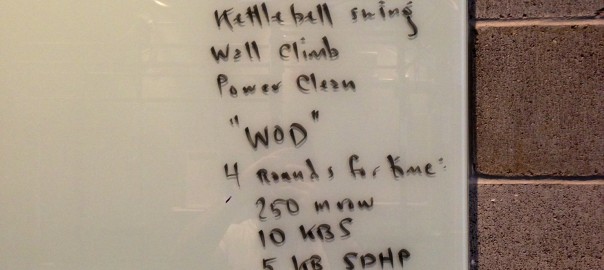 Kettlebell swing
Wall Climb
Power Clean
"WOD"
4 Rounds for time:
250 m row
10 KBS
5 KB SDHP